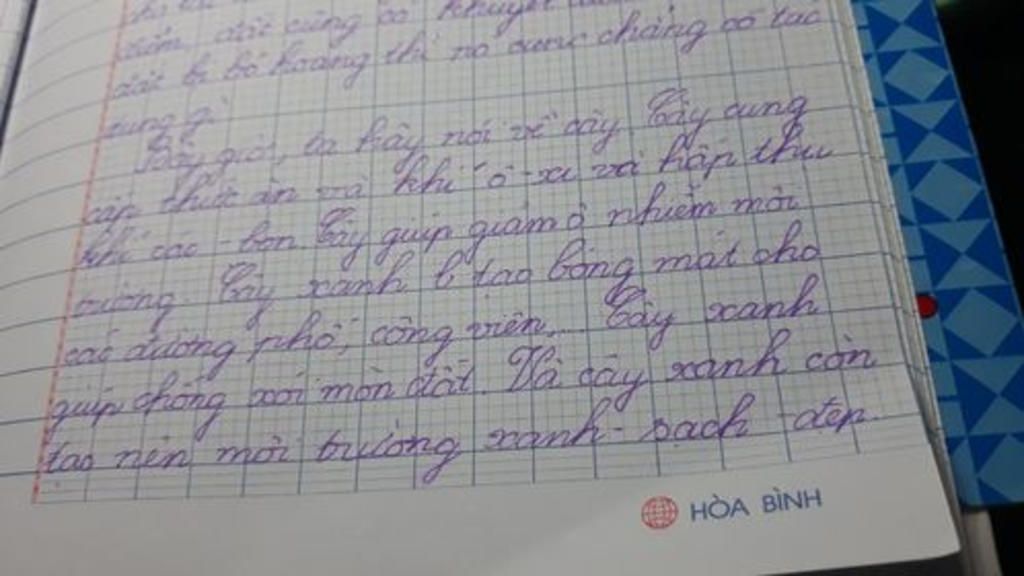 điểm, đất cũng có khuyết
đất bị bỏ hoang thì nó cũng chẳng có tác
dụng gì
Bây giờ, ta hãy nói về cây. Cây cung
cấp thức ăn và khí ô-xi và hấp thu
khí các-bon. Cây giúp giảm ô nhiễm môi
trường. Cây xanh tạo bóng mát cho
các đường phố, công viên,... Cây xanh
giúp chống xói mòn đất. Và cây xanh còn
tạo nên môi trường xanh - sạch - đẹp.
HÒA BÌNH